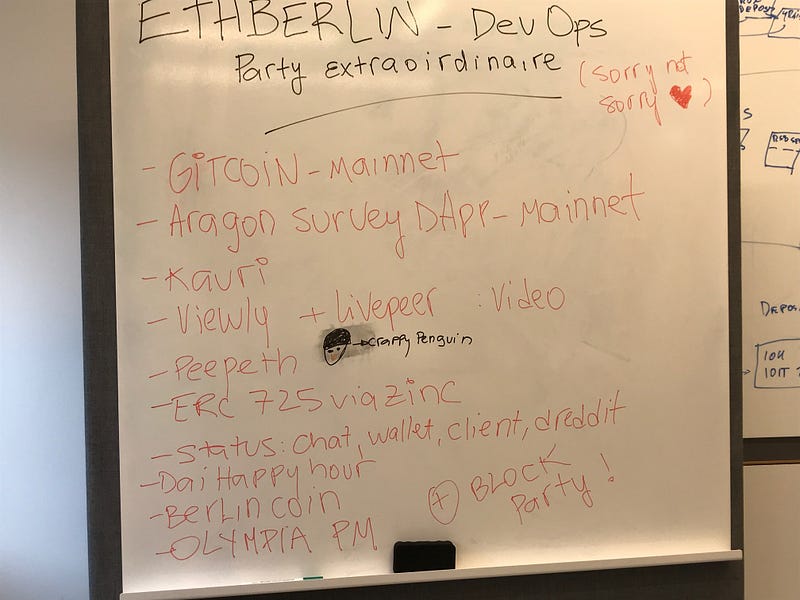 ETHBERLIN - DevOps
Party extraoirdinaire
(sorry not
sorry ♥)
- GiTCOiN - Mainnet
- Aragon Survey DApp - Mainnet
- Kauri
- Viewly + Livepeer : Video
→ crappy Penguin
- Peepeth
- ERC 725 via Zinc
- Status: chat, wallet, client, dreddit
- Dai Happy hour
- Berlin coin
- OLYMPIA PM
(+) BLOCK
Party!
DEPOS